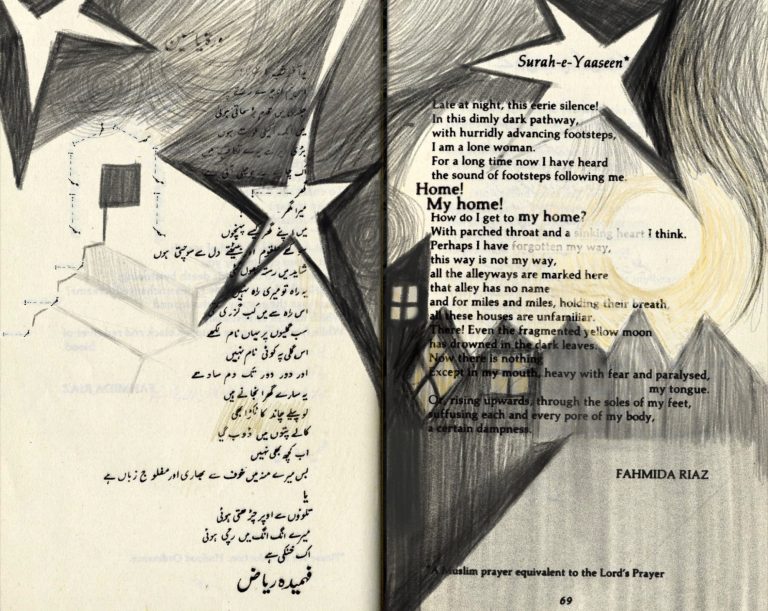 سورۂ یاسین
اس نیم اندھیرے رستے پر
جلدی میں قدم بڑھاتی ہوئی
میں ایک اکیلی عورت ہوں
بڑی دیر سے میرے تعاقب میں
اک چاپ ہے جو
گھر
میرا گھر
میں اپنے گھر کیسے پہنچوں
سوکھے حلقوم اور بیٹھتے دل سے سوچتی ہوں
شاید میں رستہ بھول گئی
یہ راہ تو میری راہ نہیں
اس راہ سے میں کب گزری تھی
سب گلیوں پر یہاں نام لکھے
اس گلی پہ کوئی نام نہیں
اور دور دور تک دم سادھے
یہ سارے گھر انجانے ہیں
لو پیلے چاند کا ٹکڑا بھی
کالے پتوں میں ڈوب گیا
اب کچھ بھی نہیں
بس میرے منہ میں خوف سے بھاری اور مفلوج زباں ہے
یا
تلووں سے اوپر چڑھتی ہوئی
میرے انگ انگ میں رچی ہوئی
اک خنکی ہے
فہمیدہ ریاض
Surah-e-Yaaseen*
Late at night, this eerie silence!
In this dimly dark pathway,
with hurridly advancing footsteps,
I am a lone woman.
For a long time now I have heard
the sound of footsteps following me.
Home!
My home!
How do I get to my home?
With parched throat and a sinking heart I think.
Perhaps I have forgotten my way,
this way is not my way,
all the alleyways are marked here
that alley has no name
and for miles and miles, holding their breath,
all these houses are unfamiliar.
There! Even the fragmented yellow moon
has drowned in the dark leaves.
Now there is nothing
Except in my mouth, heavy with fear and paralysed,
my tongue.
Or, rising upwards, through the soles of my feet,
suffusing each and every pore of my body,
a certain dampness.
FAHMIDA RIAZ
*A Muslim prayer equivalent to the Lord's Prayer
69